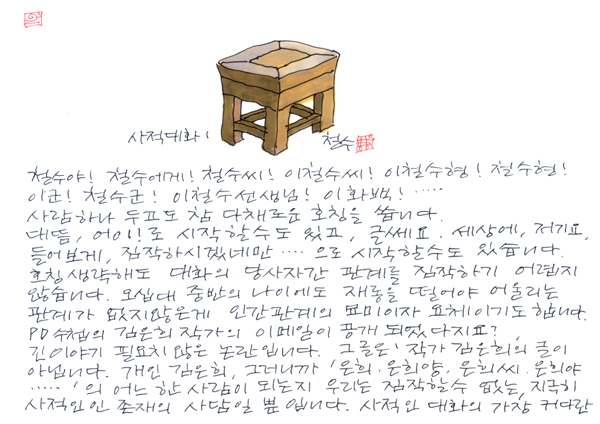 사적대화!
철수
철수야! 철수에게! 철수씨! 이철수씨! 이철수형! 철수형!
이군! 철수군! 이철수선생님! 이화백! ·····
사람하나 두고도 참 다채로운 호칭을 씁니다.
대뜸, 어이!로 시작할수도 있고, 글쎄요. 세상에, 저기요,
들어보게, 짐작하시겠네만 ···· 으로 시작할수도 있습니다.
호칭 생략해도 대화의 당사자간 관계를 짐작하기 어렵지
않습니다. 오십대 중반의 나이에도 재롱을 떨어야 어울리는
관계가 없지않은게 인간관계의 묘미이자 요체이기도 합니다.
PD수첩의 김은희 작가의 이메일이 공개 되었다지요?
긴이야기 필요치 않은 논란입니다. 그글은 작가 김은희의 글이
아닙니다. 개인 김은희, 그러니까 '은희·은희양·은희씨·은희야
·····'의 어느 한 사람이 되는지 우리는 짐작할수 없는, 지극히
사적인인 존재의 사담일 뿐 입니다. 사적인 대화의 가장 커다란